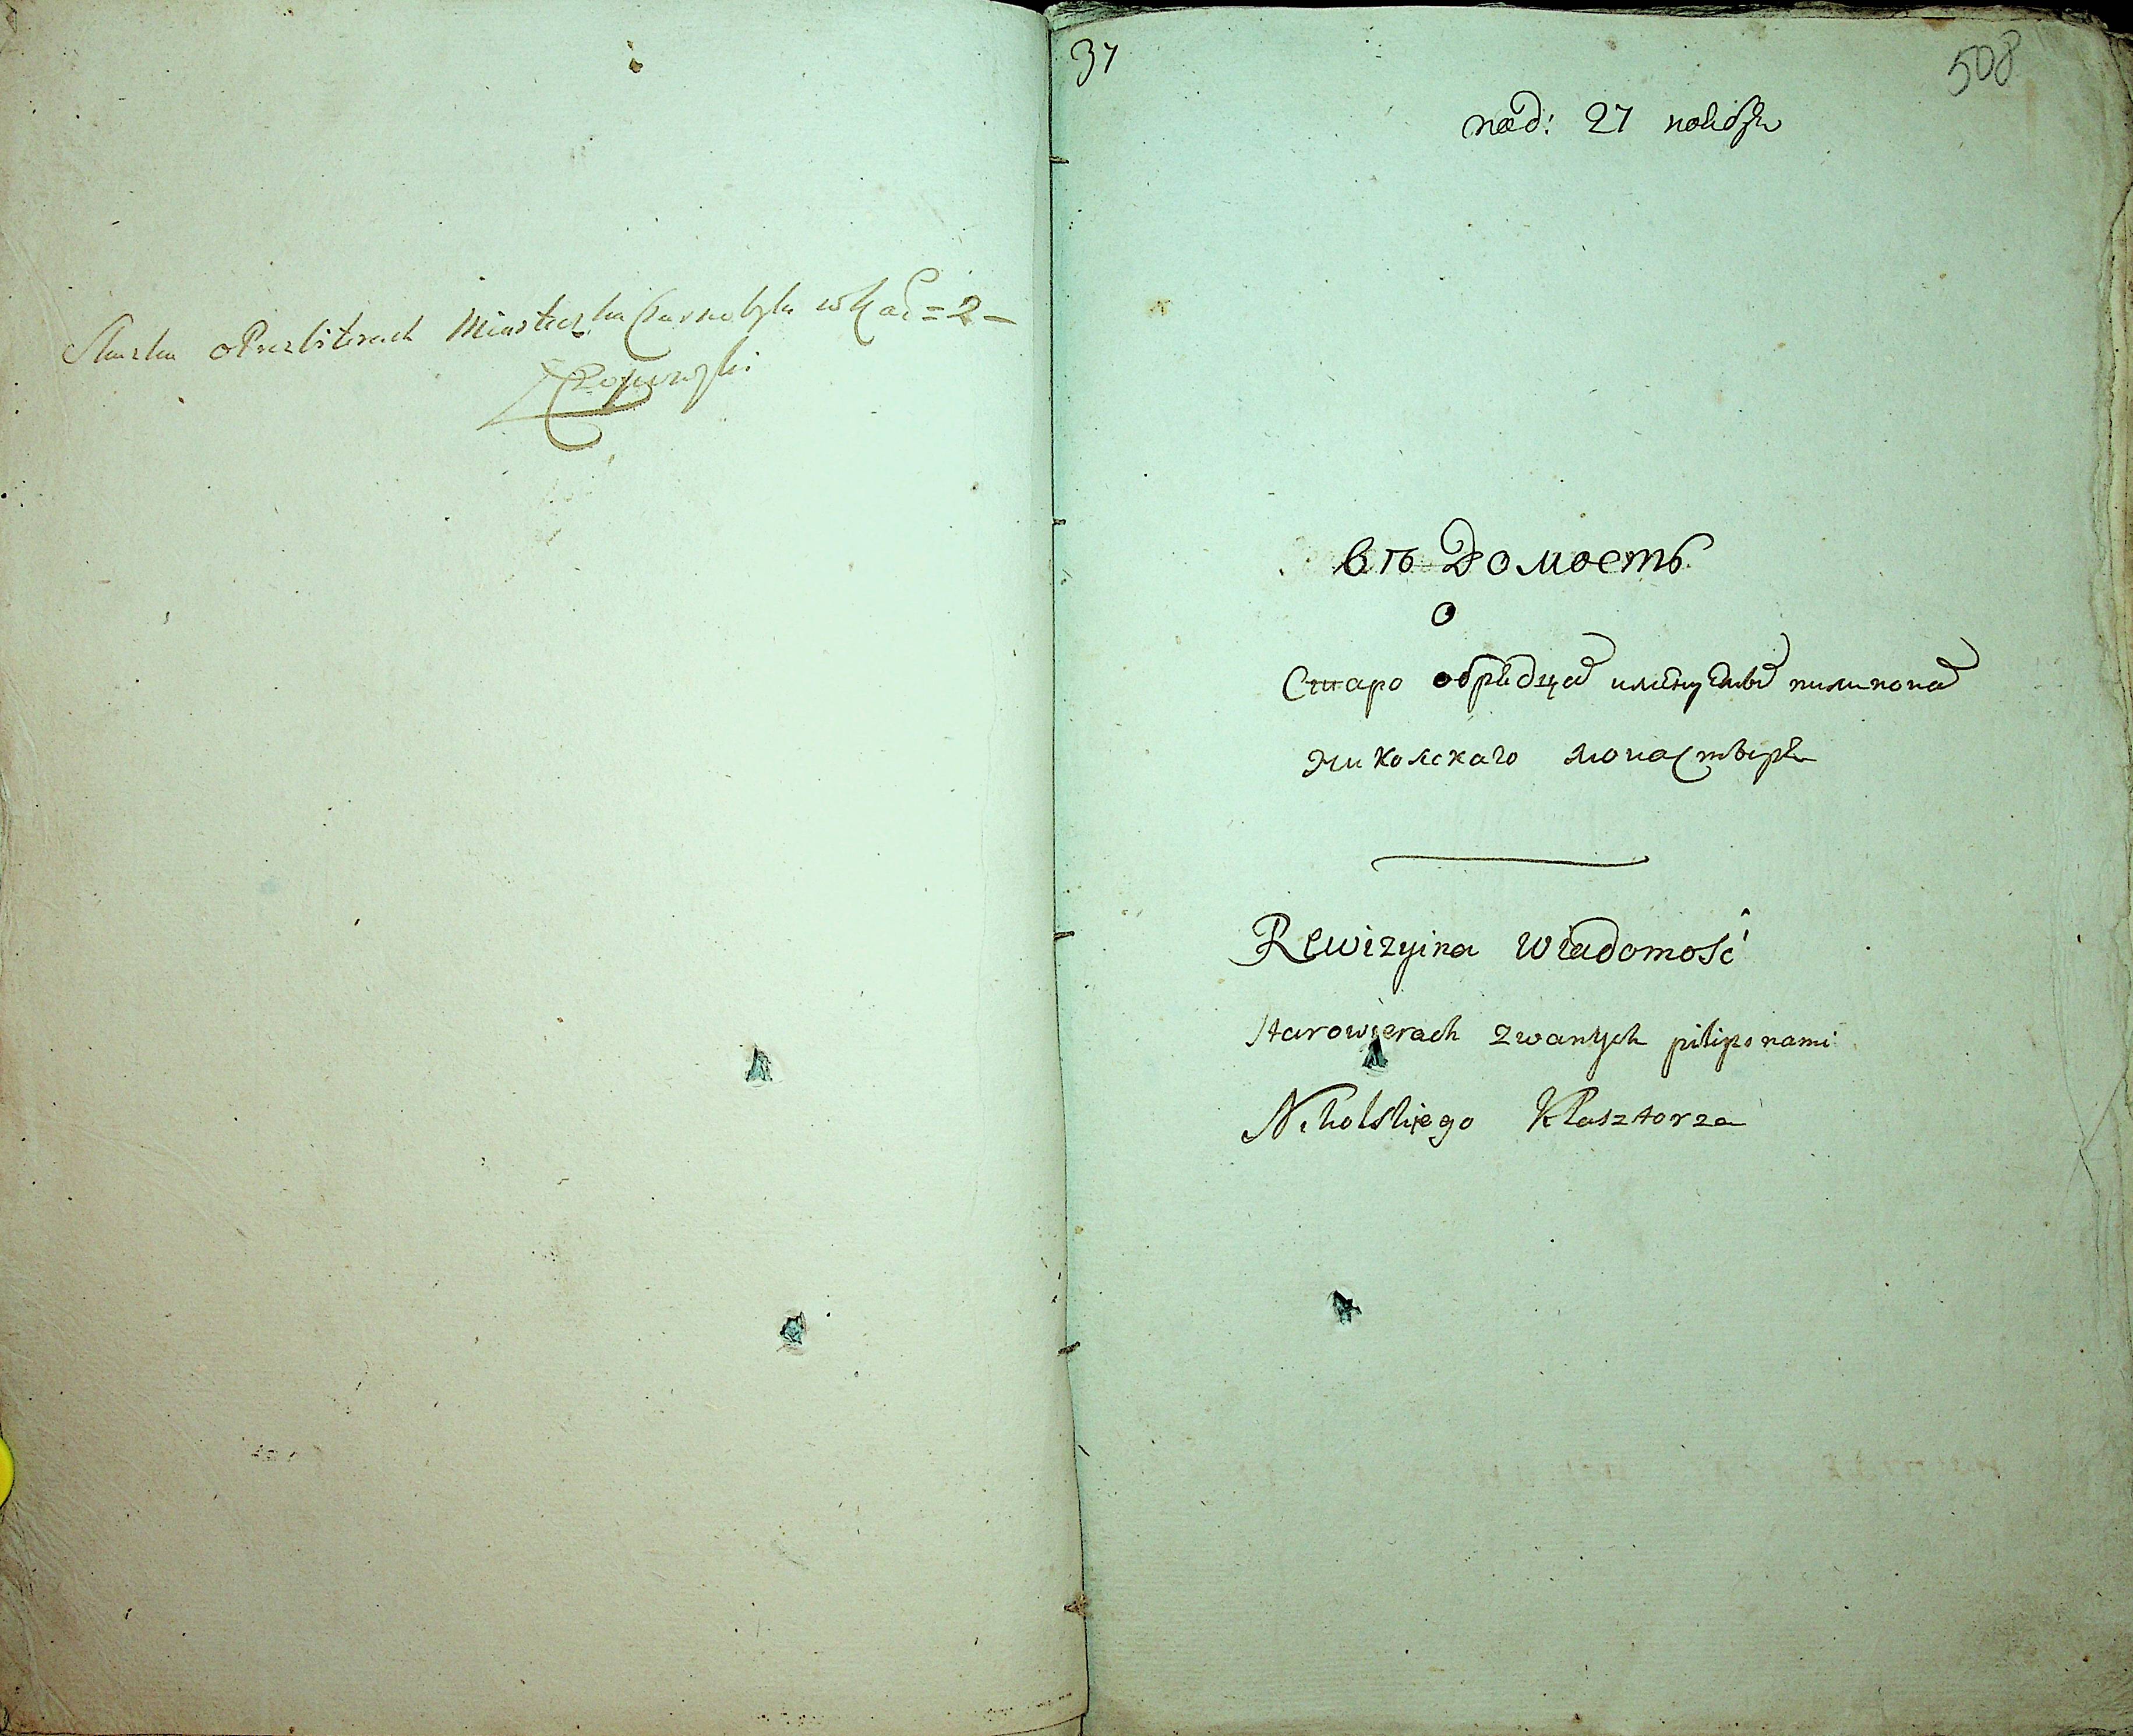 Skazka o Prezbiterach Miasteczka Czarnobyla w Kad = 2 –
37
508
под: 27 ноября
вѣдомость
о
Старо обрядцах имянуемых пилипонах
Николскаго монастыря
Rewizyina Wiadomość
Starowierach zwanych piliponami
Nikolskiego Klasztorza